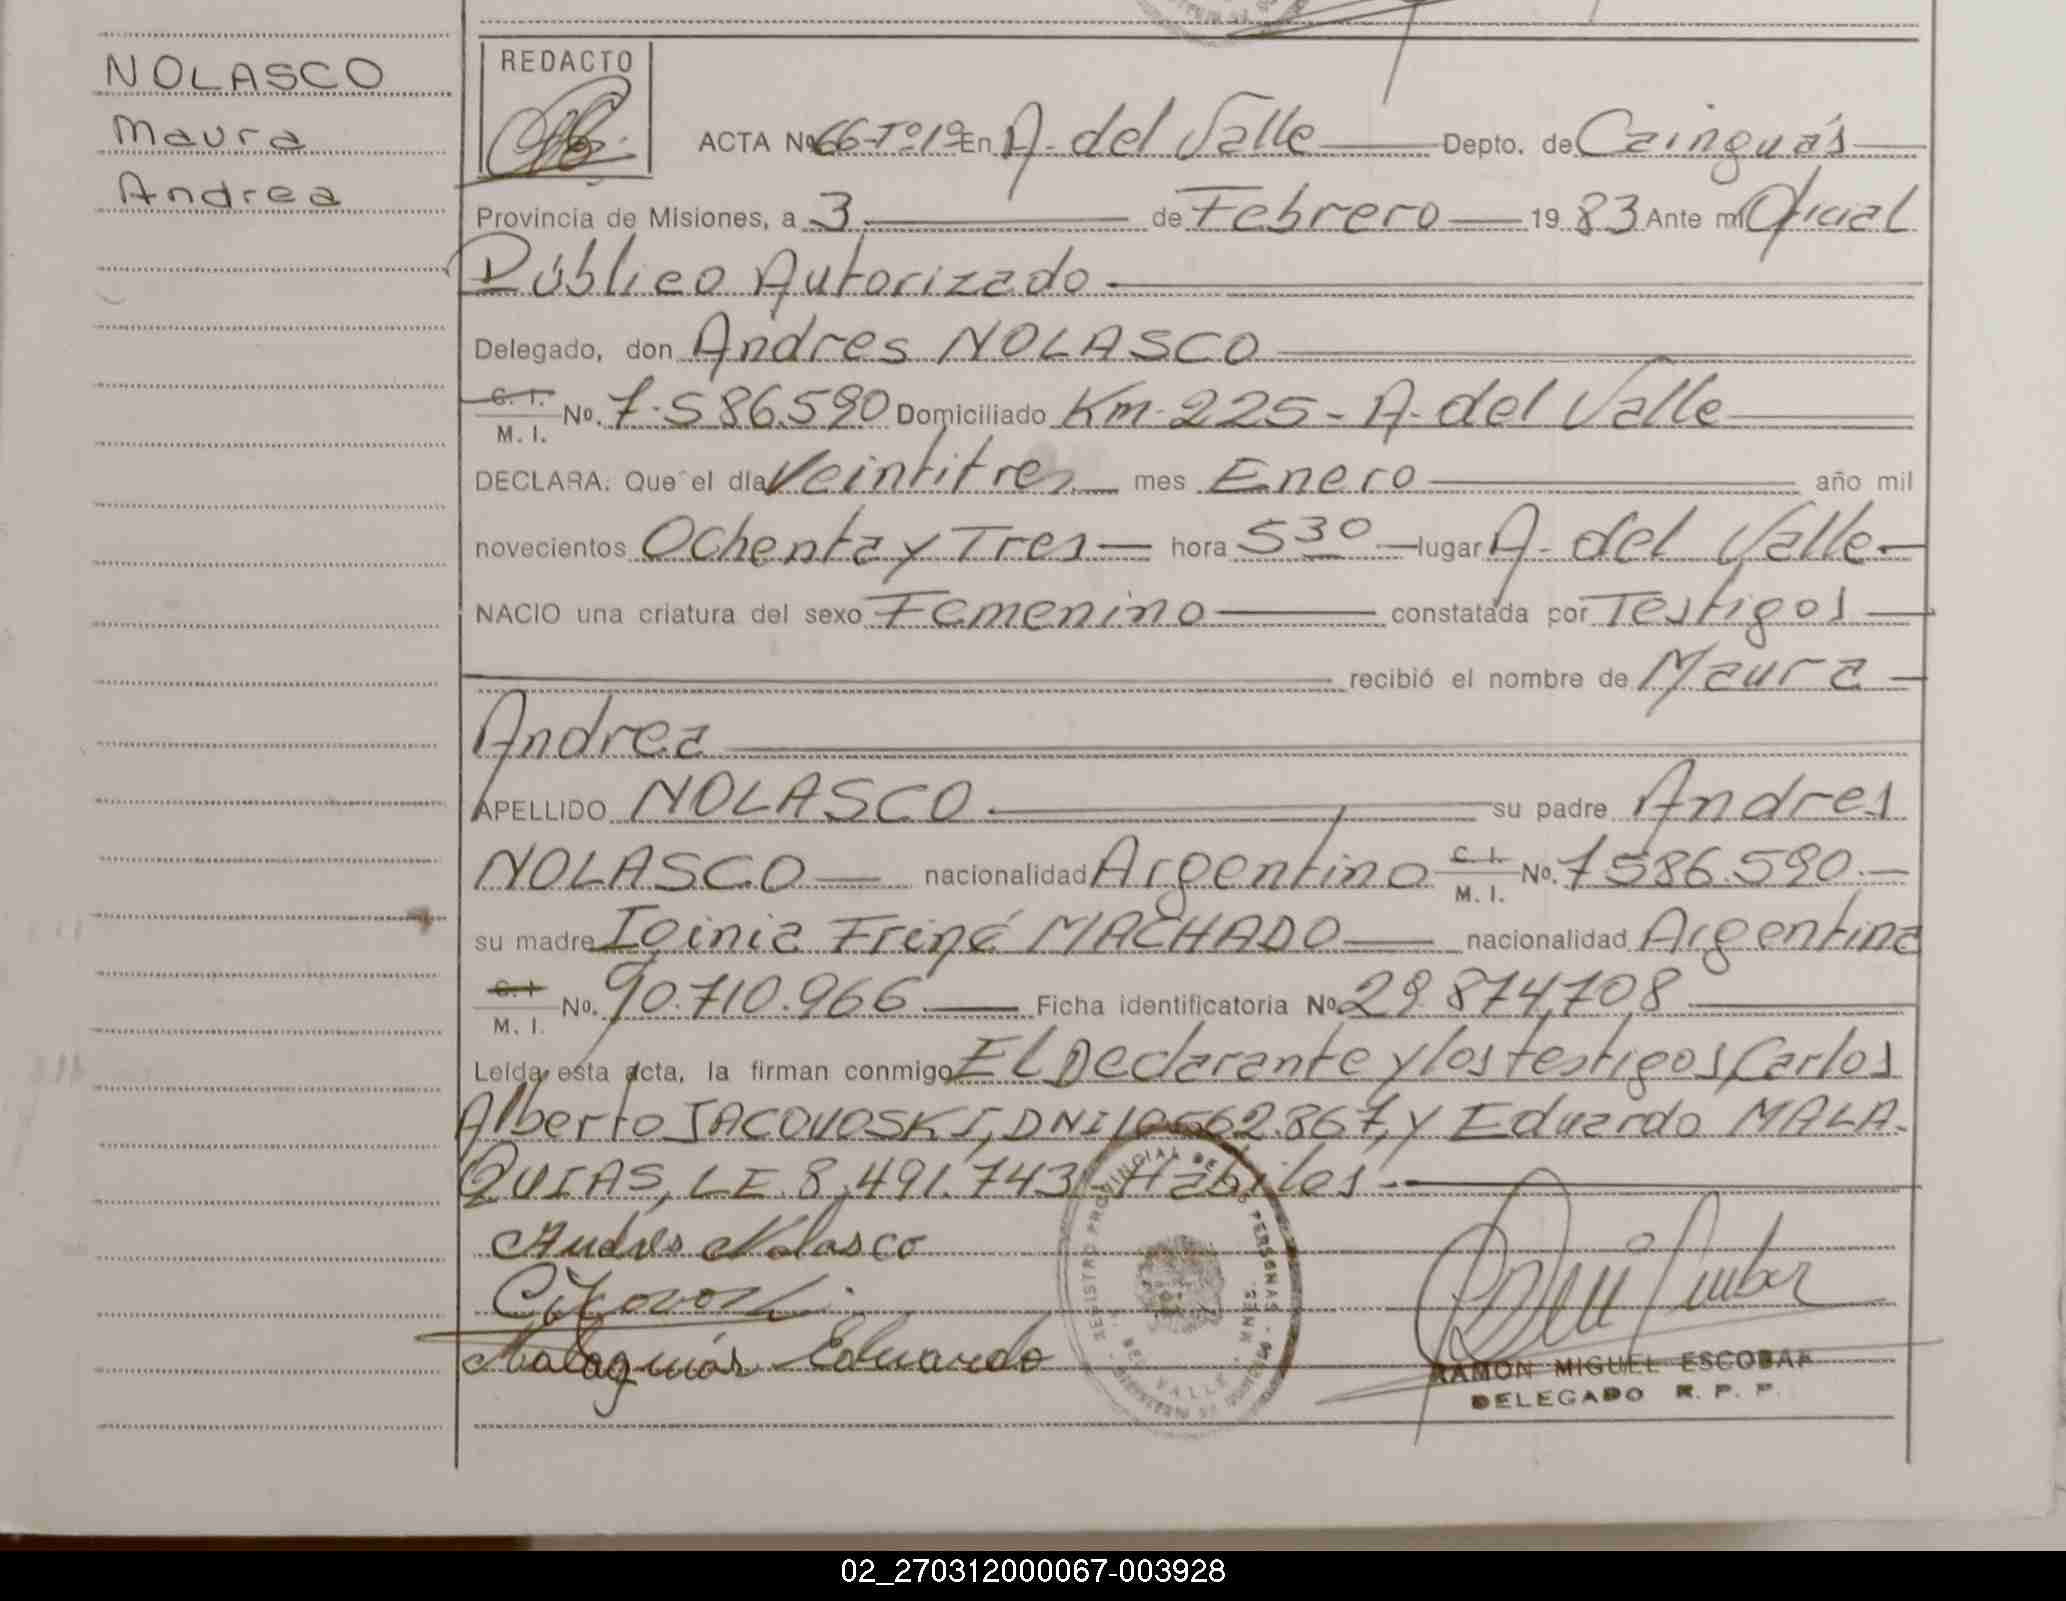 NOLASCO
Maura
Andrea
REDACTO
ACTA Nº 66-Tº1º En A. del Valle Depto. de Cainguás
Provincia de Misiones, a 3 de Febrero 1983 Ante mí Oficial
Público Autorizado
Delegado, don Andres NOLASCO
C. I. M. I. Nº. 7.586.590 Domiciliado Km. 225 - A. del Valle
DECLARA: Que el día Veintitres mes Enero año mil
novecientos Ochenta y Tres hora 5 30 lugar A. del Valle
NACIO una criatura del sexo Femenino constatada por Testigos
recibió el nombre de Maura
Andrea
APELLIDO NOLASCO su padre Andres
NOLASCO nacionalidad Argentino C. I. M. I. Nº. 7.586.590.
su madre Iginia MACHADO nacionalidad Argentina
C. I. M. I. Nº. 90.710.966 Ficha identificatoria Nº 29.874.708
Leída esta acta, la firman conmigo El Declarante y los testigos, Carlos
Alberto JACOVOSKI, DNI 10.562.867, y Eduardo MALA-
QUIAS, LE. 8.491.743 Hábiles.
Andrés Nolasco
Malaquias Eduardo
REGISTRO PROVINCIAL DE LAS PERSONAS
DEL VALLE
RAMON MIGUEL ESCOBAR
DELEGADO R. P. P.
02_270312000067-003928